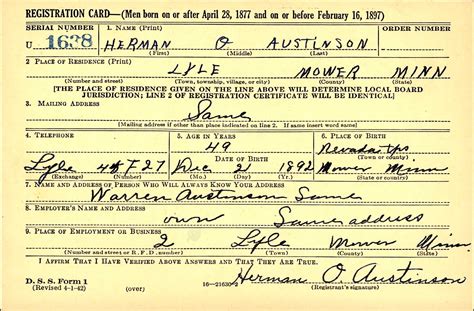 REGISTRATION CARD—(Men born on or after April 28, 1877 and on or before February 16, 1897)
SERIAL NUMBER 1. NAME (Print) ORDER NUMBER
U 1638 HERMAN O AUSTINSON
(First) (Middle) (Last)
2. PLACE OF RESIDENCE (Print)
LYLE MOWER MINN
(Number and street) (Town, township, village, or city) (County) (State)
[THE PLACE OF RESIDENCE GIVEN ON THE LINE ABOVE WILL DETERMINE LOCAL BOARD
JURISDICTION; LINE 2 OF REGISTRATION CERTIFICATE WILL BE IDENTICAL]
3. MAILING ADDRESS
Same
[Mailing address if other than place indicated on line 2. If same insert word same]
4. TELEPHONE 5. AGE IN YEARS 6. PLACE OF BIRTH
49 Nevada Tps
DATE OF BIRTH (Town or county)
Lyle 45F27 Dec 21 1892 Mower Minn
(Exchange) (Number) (Mo.) (Day) (Yr.) (State or country)
7. NAME AND ADDRESS OF PERSON WHO WILL ALWAYS KNOW YOUR ADDRESS
Warren Austinson Same
8. EMPLOYER'S NAME AND ADDRESS
own Same address
9. PLACE OF EMPLOYMENT OR BUSINESS
2 Lyle Mower Minn
(Number and street or R. F. D. number) (Town) (County) (State)
I AFFIRM THAT I HAVE VERIFIED ABOVE ANSWERS AND THAT THEY ARE TRUE.
Herman O. Austinson
D. S. S. Form 1
(Revised 4-1-42) (over) 16—21630-2 (Registrant's signature)